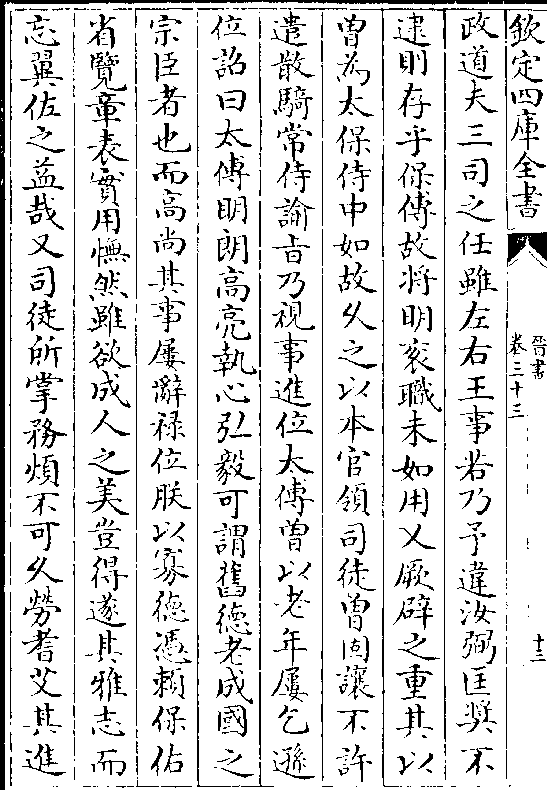 欽定四庫全書
晉書
卷三十三
十三
政道夫三司之任雖左右王事若乃予違汝弼匡奬不
逮則存乎保傅故將明衮職未如用乂厥辟之重其以
曽為太保侍中如故久之以本官領司徒曽固讓不許
遣散騎常侍諭旨乃視事進位太傅曽以老年屢乞遜
位詔曰太傅明朗高亮執心弘毅可謂舊德老成國之
宗臣者也而高尚其事屢辭祿位朕以寡德憑賴保佑
省覽章表實用憮然雖欲成人之美豈得遂其雅志而
忘翼佐之益哉又司徒所掌務煩不可久勞耆艾其進